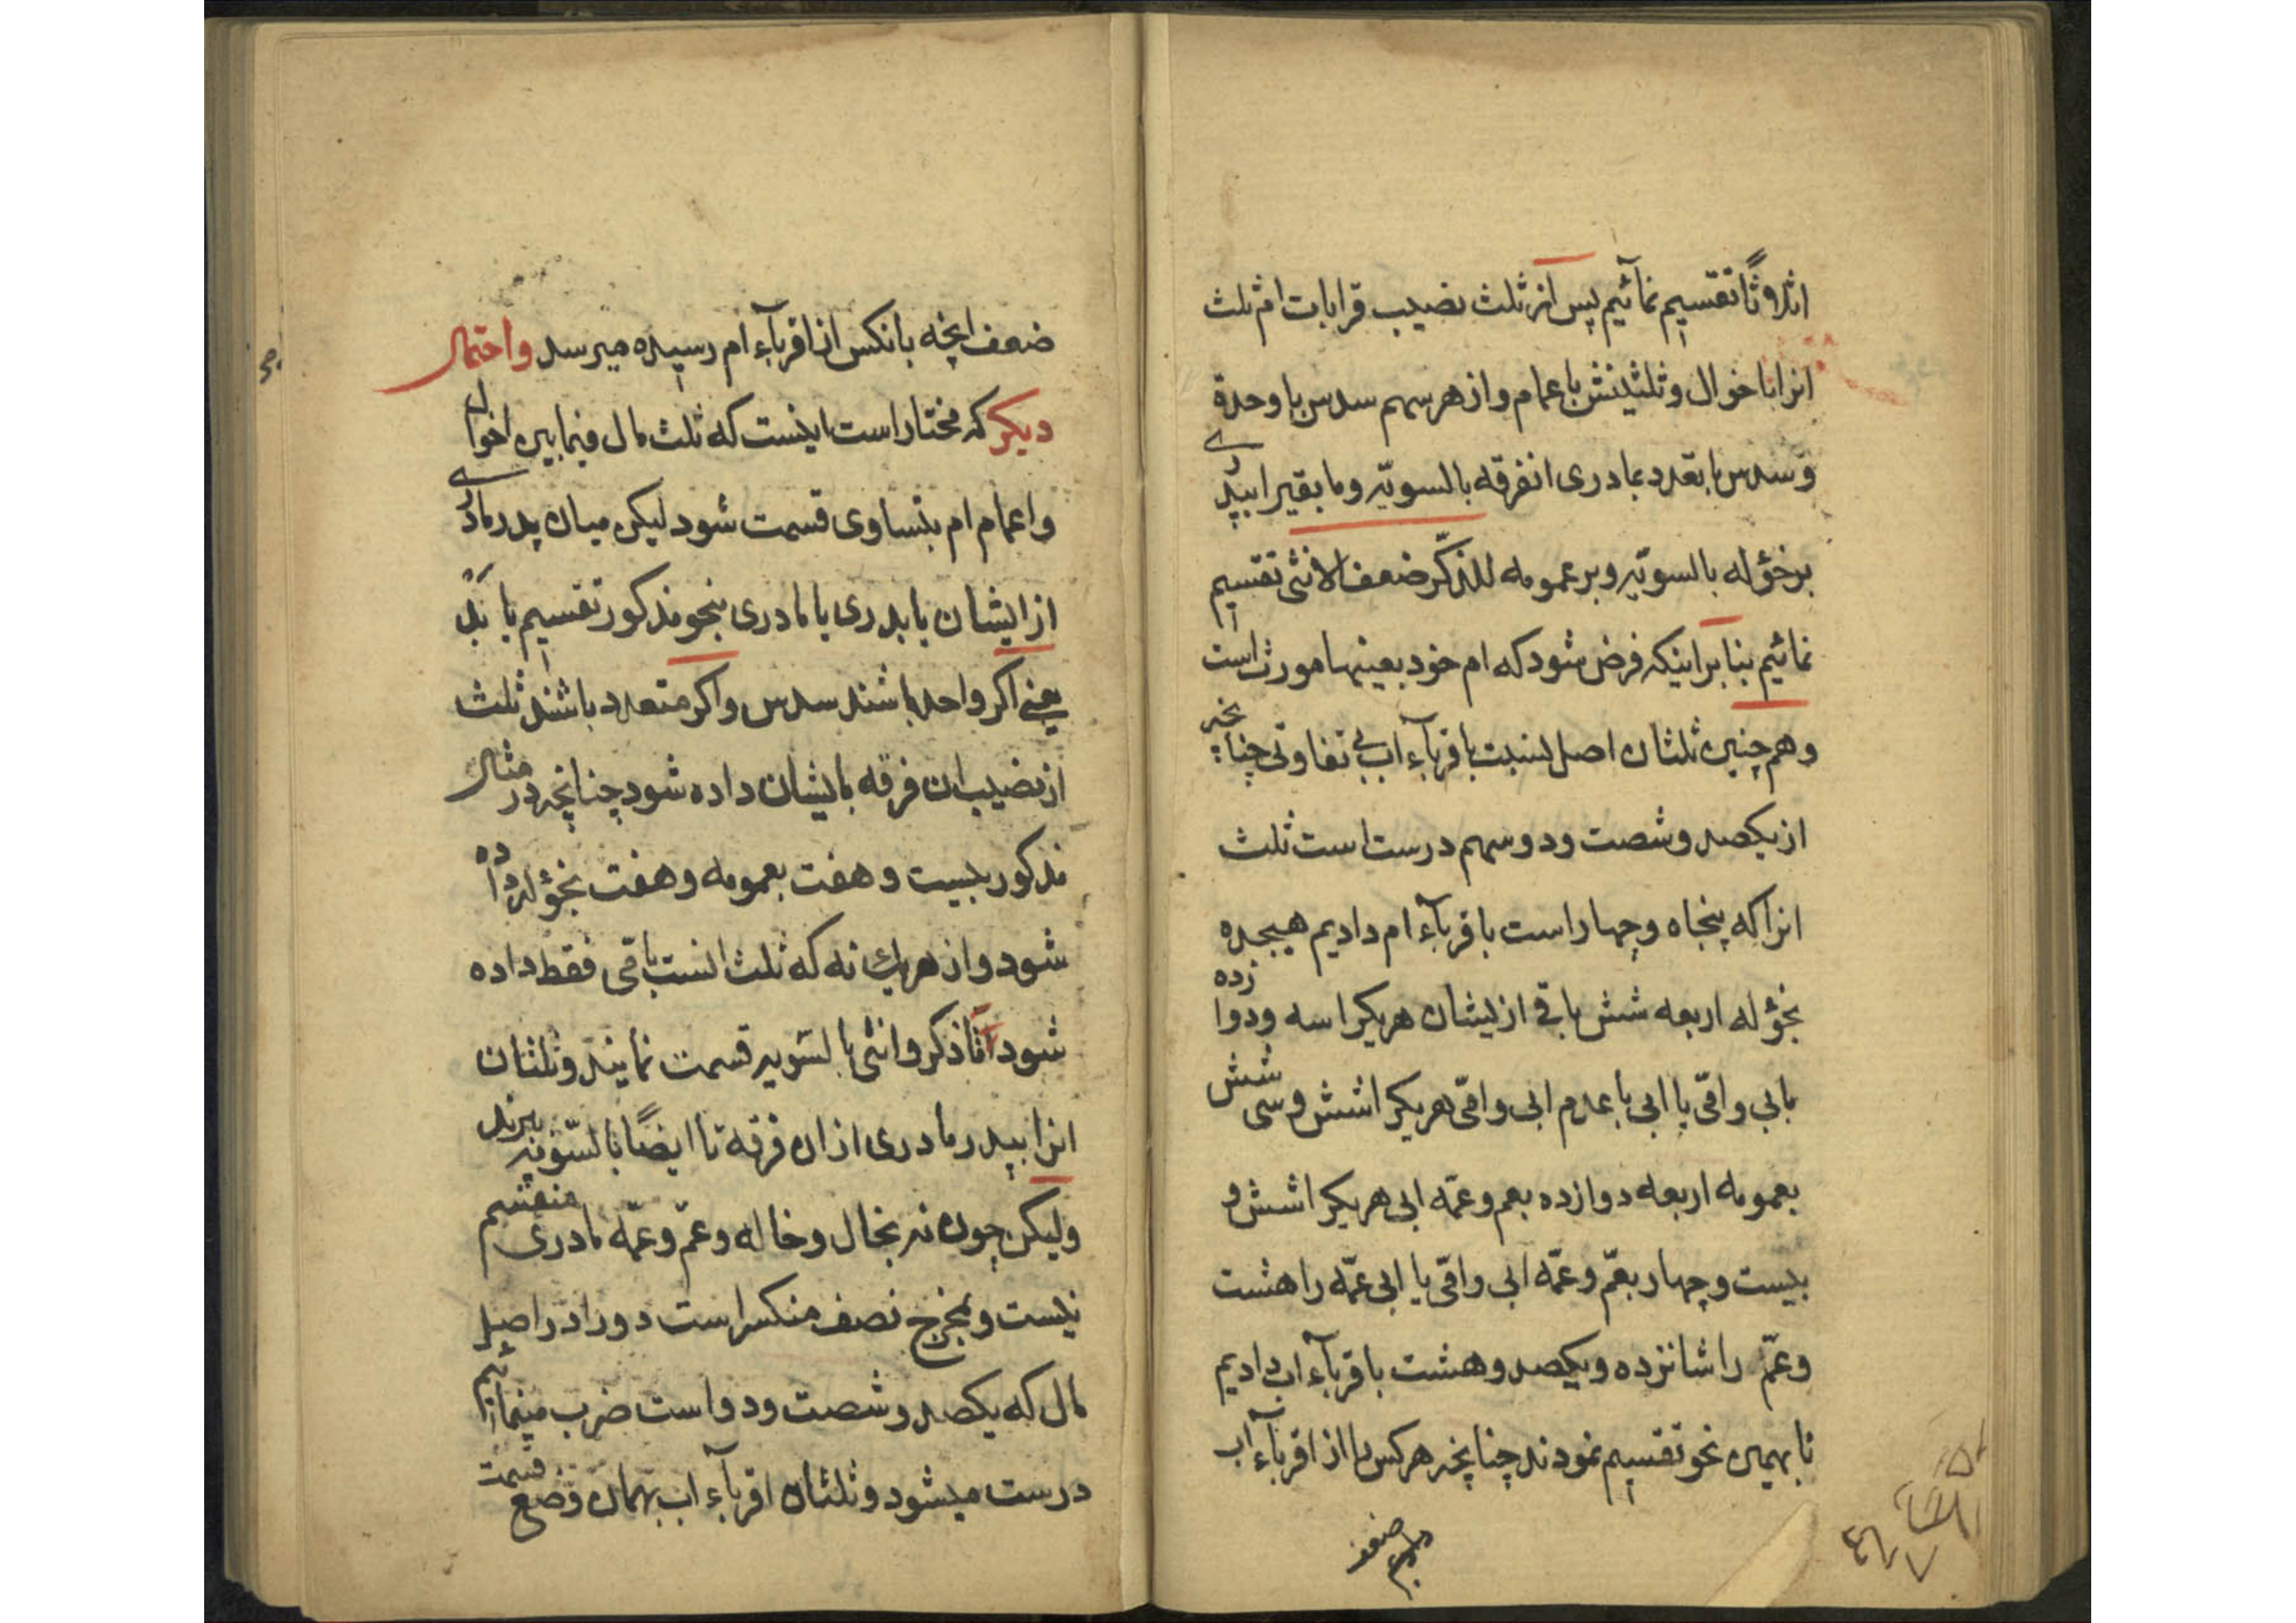 اثلاوثاً تقسیم نمائیم پس از ثلث نصیب قرابات ام ثلث
انرا باخوال و ثلثینش باعمام و از هر سهم سدس با وحدة
و سدس با تعدد بمادری انفرقه بالسویّه و ما بقیرا بپدری
بر خؤله بالسویّه و بر عمومه للذکّر ضعف الانثی تقسیم
نمائیم بنا بر اینکه فرض شود که ام خود بعینها مورث است
و هم چنین ثلثان اصل لنسبت باقربآء اب بی تفاوتی چنانچه
از یکصد و شصت و دو سهم درست است ثلث
انرا که پنجاه و چهار است باقربآء ام دادیم هیجده
بخؤله اربعه شش باقی از یشان هر یکرا سه و دوازده
بابی و امّی یا ابی با عدم ابی و امّی هر یکرا شش و سی شش
بعمومه اربعه دوازده بعم و عمّه ابی هر یکرا شش و
بیست و چهار بعمّ و عمّه ابی و امّی یا ابی عمّه را هشت
و عمّ را شانزده و یکصد و هشت باقربآء اب دادیم
تا بهمین نحو تقسیم نمودند چنانچه هر کس را از اقربآء اب
دادیم ضعف
ضعف انچه بانکس از اقربآء ام رسیده میرسد و احتمال
دیکر که مختار است اینست که ثلث مال فیمابین اخوال
و اعمام ام بتساوی قسمت شود لیکن میان پدر مادری
از ایشان یا پدری با مادری بنحو مذکور تقسیم یابد
یعنی اکر واحد باشند سدس و اکر متعدد باشند ثلث
از نصیب ان فرقه بایشان داده شود چنانچه در مثال
مذکور بیست و هفت بعمومه و هفت بخؤله داده
شود و از هر یك نه که ثلث انست باقی فقط داده
شود تا ذکر و انثی بالسّویه قسمت نمایند و ثلثان
انرا بپدر مادری از ان فرقه تا ایضًا بالسّویه برند
و لیکن چون نه بخال و خاله و عمّ و عمّه مادری منقسم
نیست و بمخرج نصف منکسر است دو را در اصل
مال که یکصد و شصت و دو است ضرب مینمائیم
درست میشود و ثلثان اقربآء اب بهمان وضع قسمت